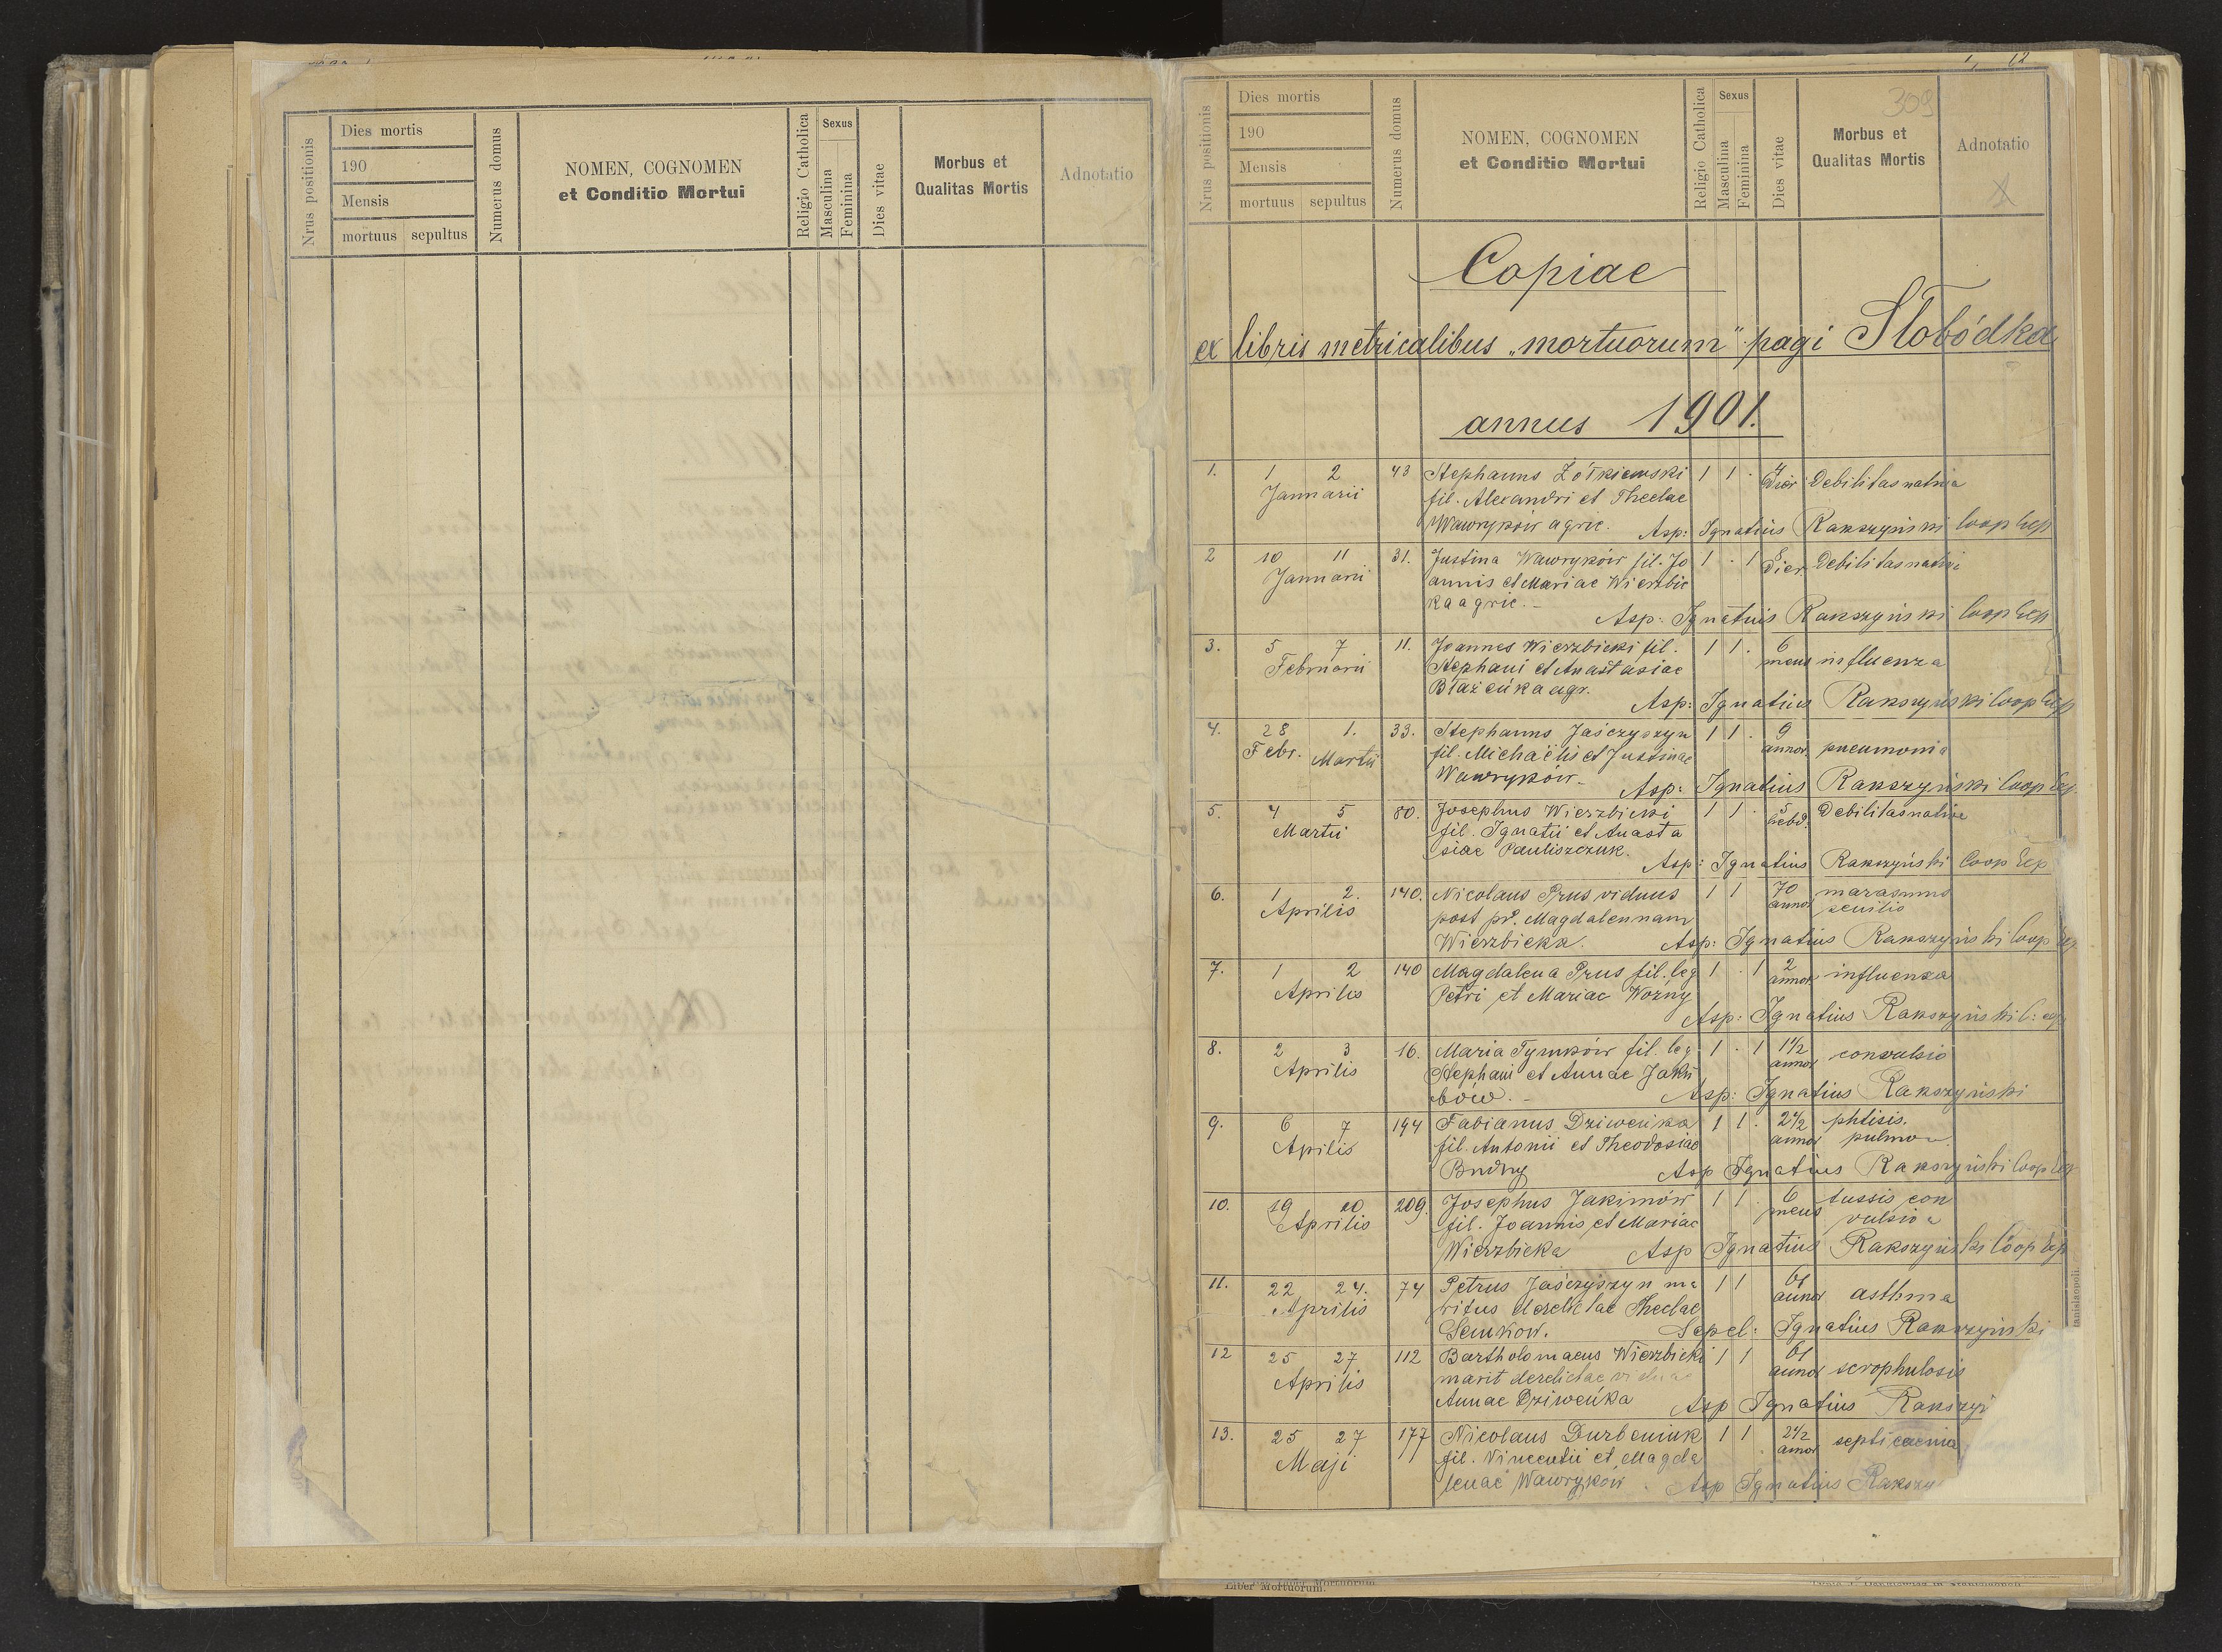 Nrus positionis
Dies mortis
190
Mensis
mortuus sepultus
Numerus domus
NOMEN, COGNOMEN
et Conditio Mortui
Religio Catholica
Sexus
Masculina
Feminina
Dies vitae
Morbus et
Qualitas Mortis
Adnotatio
12
309
Nrus positionis
Dies mortis
190
Mensis
mortuus sepultus
Numerus domus
NOMEN, COGNOMEN
et Conditio Mortui
Religio Catholica
Sexus
Masculina
Feminina
Dies vitae
Morbus et
Qualitas Mortis
Adnotatio
Copiae
ex libris metricalibus „mortuorum" pagi Słobódka
annus 1901.
1. 1 2 43 Stephanus Żółkiewski 1 1 · 4 Debilitas nativa
Januarii fil. Alexandri et Theclae dier
Wawryków agric. Asp: Ignatius Rakszyński Coop Exp
2 10 11 31. Justina Wawryków fil. Jo 1 · 1 8 Debilitas nativa
Januarii annis et Mariae Wierzbic dier
ka agric. – Asp: Ignatius Rakszyński Coop Exp
3. 5 7 11. Joannes Wierzbicki fil. 1 1 · 6
Februarii Stephani et Anastasiae mens influenza
Błażeńka agr. Asp: Ignatius Rakszyński Coop Exp
4. 28 1. 33. Stephanus Jaśczyszyn 1 1 · 9
Febr. Martii fil. Michaëlis et Justinae annor pneumonia
Wawryków – Asp: Ignatius Rakszyński Coop Exp.
5. 4 5 80. Josephus Wierzbicki 1 1 · 5 Debilitas nativa
Martii fil. Ignatii et Anasta hebd.
siae Pauliszczuk. Asp: Ignatius Rakszyński Coop Exp
6. 1 2. 140. Nicolaus Prus viduus 1 1 70 marasmus
Aprilis post pd. Magdalennam annor senilis
Wierzbicka. Asp: Ignatius Rakszyński Coop Exp
7. 1 2 140 Magdalena Prus fil. leg 1 · 1 2 influenza
Aprilis Petri et Mariae Woźny annor
Asp: Ignatius Rakszyński C: exp
8. 2 3 16. Maria Tymków fil. leg 1 · 1 1½ convulsio
Aprilis Stephani et Annae Jaku annor
bów. – Asp: Ignatius Rakszyński
9. 6 7 194 Fabianus Dziweńka 1 1 · 2½ phtisis.
Aprilis fil. Antonii et Theodosiae annor pulmon
Budny Asp Ignatius Rakszyński Coop Exp
10. 19 20 209. Josephus Jakimów 1 1 · 6 tussis con
Aprilis fil. Joannis et Mariae mens vulsiva
Wierzbicka Asp Ignatius Rakszyński Coop Exp
11. 22 24. 74 Petrus Jaśczyszyn ma 1 1 61
Aprilis ritus derelictae Theclae annor asthma
Semkow. Sepel: Ignatius Rakszyński
12 25 27 112 Bartholomaeus Wierzbicki 1 1 61
Aprilis marit derelictae viduae annor scrophulosis
Annae Dziweńka Asp Ignatius Rakszy
13. 25 27 177 Nicolaus Durbeniuk 1 1 2½ septicaemia
Maji fil. Vincentii et Magda annor
lenae Wawryków. Asp Ignatius Rakszy
Liber Mortuorum.